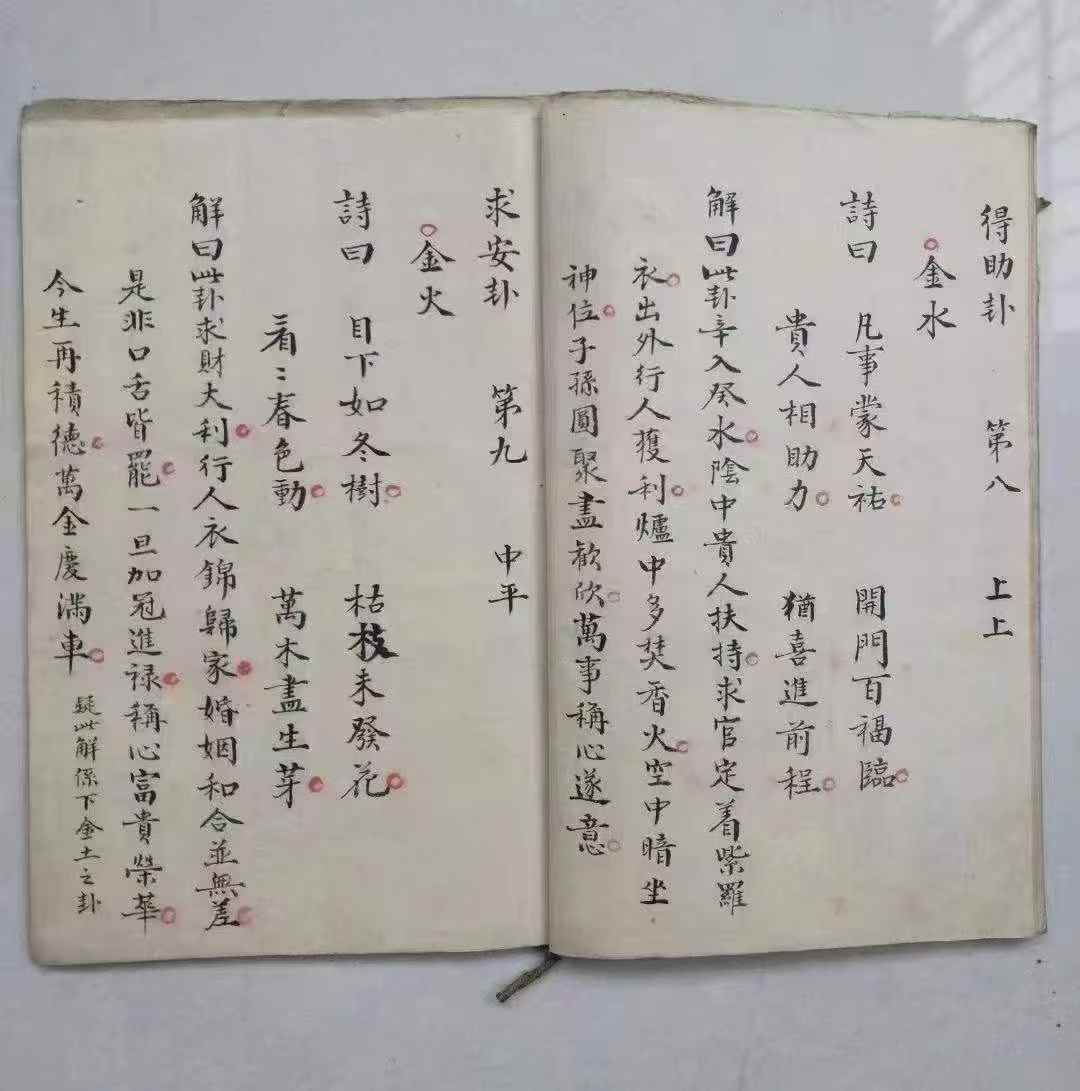 得助卦 第八 上上
金水
詩曰 凡事蒙天祐 開門百福臨
貴人相助力 猶喜進前程
解曰此卦辛入癸水陰中貴人扶持求官定着紫羅
衣出外行人獲利爐中多焚香火空中暗坐
神位子孫圓聚盡歡欣萬事稱心遂意
求安卦 第九 中平
金火
詩曰 目下如冬樹 枯枝未發花
看〻春色動 萬木盡生芽
解曰此卦求財大利行人衣錦歸家婚姻和合並無差
是非口舌皆罷一旦加冠進禄稱心富貴榮華
今生再積德萬金慶滿車
疑此解係下金土之卦